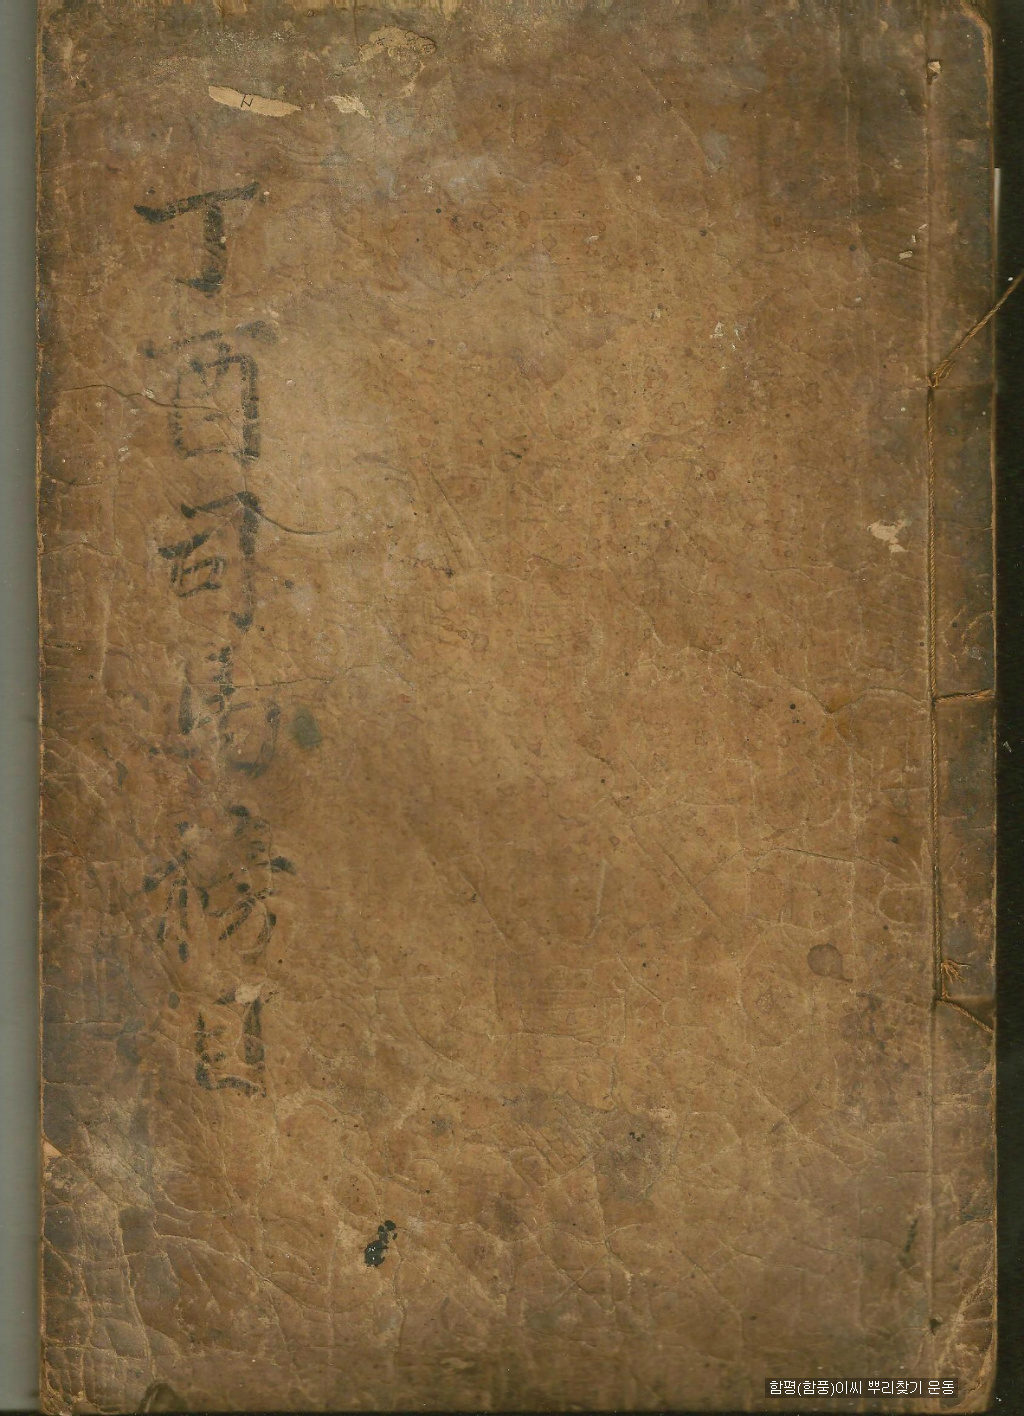 丁酉司馬榜目
함평(함풍)이씨 뿌리찾기 운동